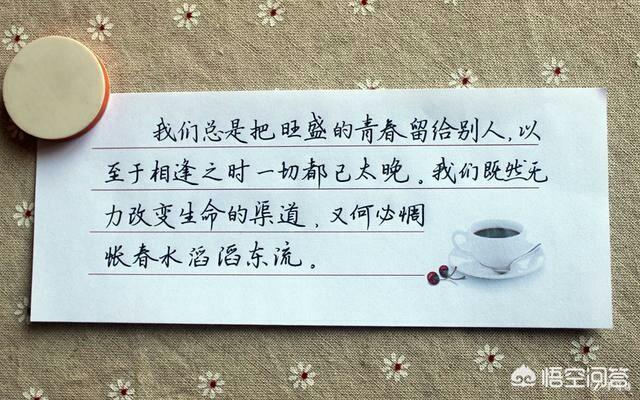 我们总是把旺盛的青春留给别人，以
至于相逢之时一切都已太晚。我们既然无
力改变生命的渠道，又何必惆
怅春水滔滔东流。
悟空问答